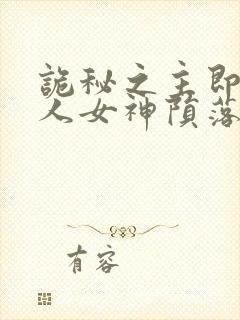 诡秘之主即
人女神陨落
有容